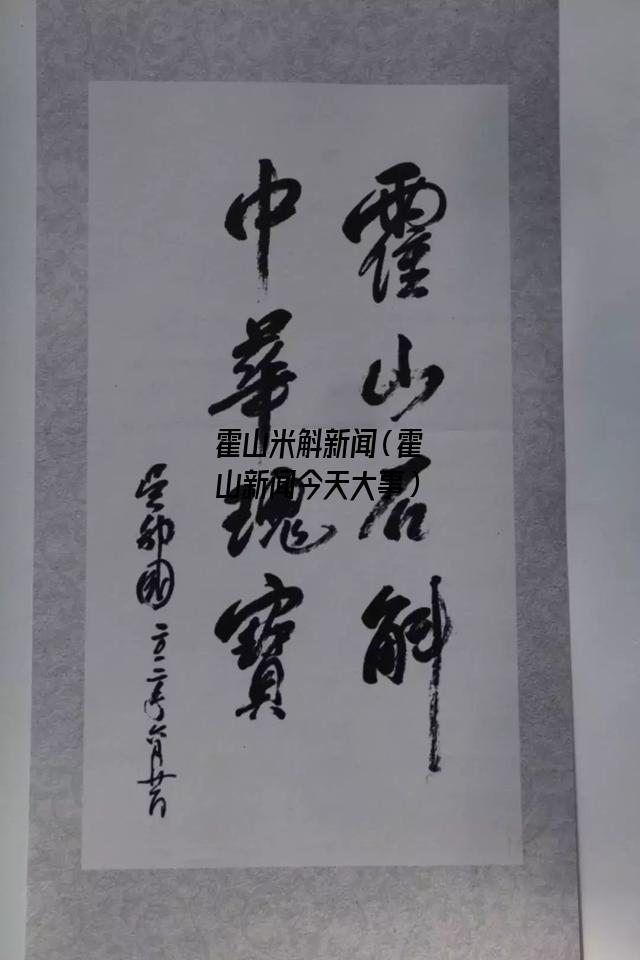 霍山石斛
中華瑰寶
吴邦國
二〇一二年六月廿一日
霍山米斛新闻（霍
山新闻今天大事）